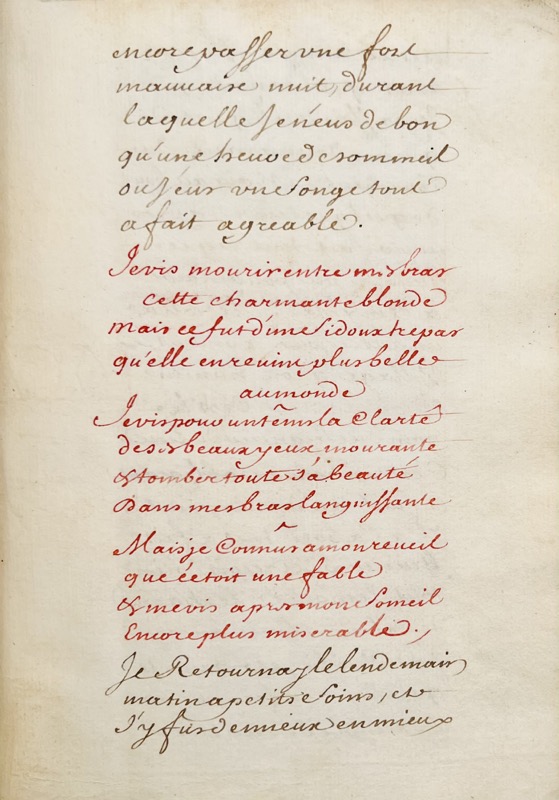 encore passer une fort
mauvaise nuit, durant
laquelle Je n'eus de bon
qu'une heure de sommeil
ou J'eus une songe tout
a fait agreable.
Je vis mourir entre mes bras
cette charmante blonde
Mais ce fut d'une si doux trepas
qu'elle en revint plus belle
au monde
Je vis pour un têms la Clarté
de ses beaux yeux mourante
& tomber toute sa beauté
Dans mes bras languissante
Mais je Connus a mon reveil
que c'etoit une fable
& me vis apres mon someil
Encore plus miserable.
Je Retournay le lendemain
matin a petits soins, et
J'y fus de mieux en mieux